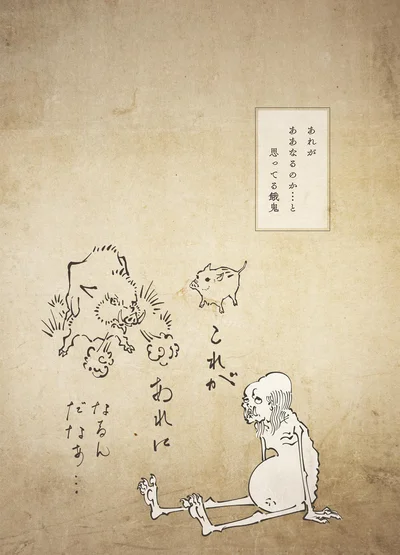 あれが
ああなるのか…と
思ってる餓鬼
これが
あれに
なるん
だなあ…